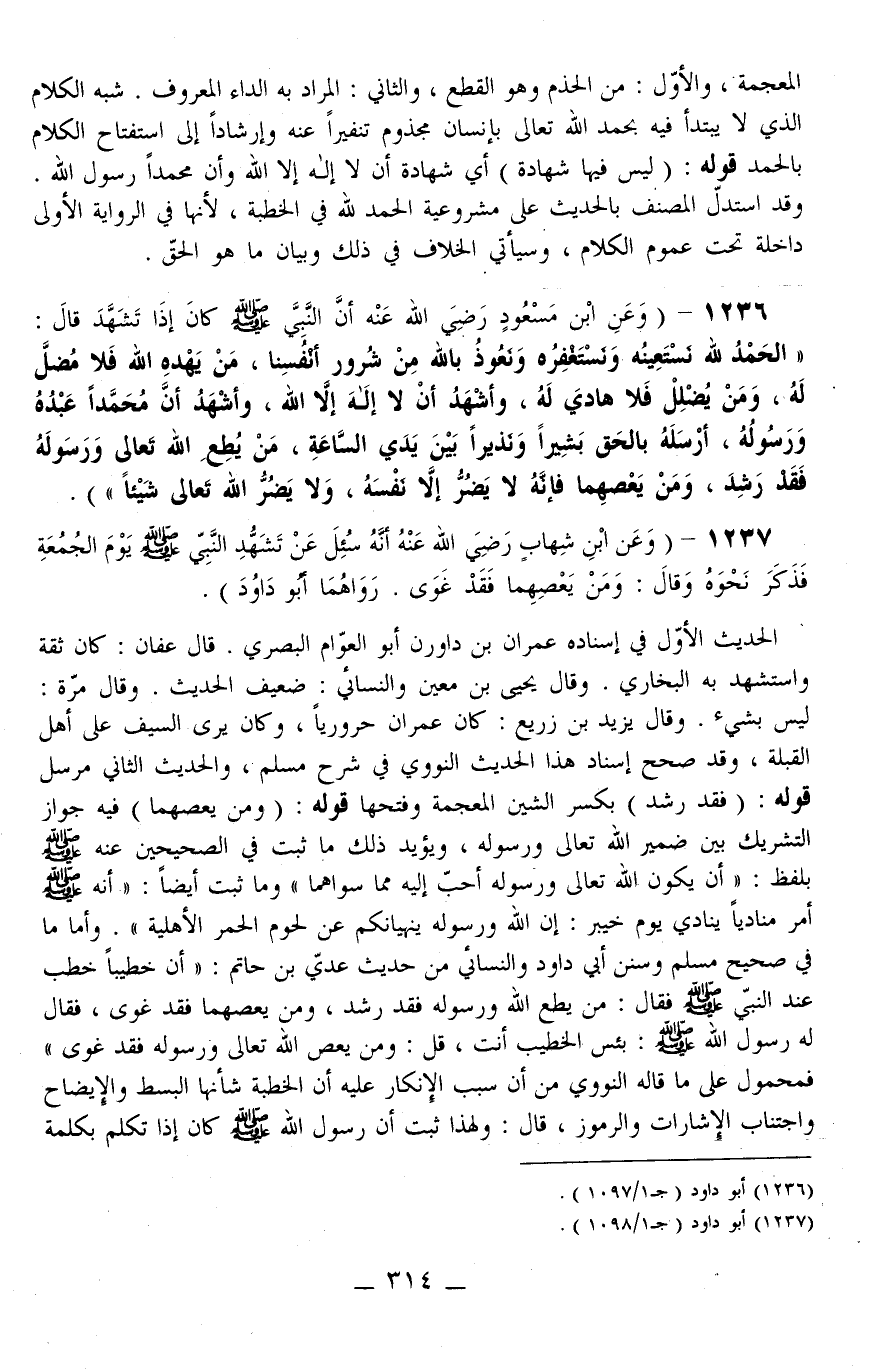 المعجمة ، والأوّل : من الحذم وهو القطع ، والثاني : المراد به الداء المعروف . شبه الكلام
الذي لا يبتدأ فيه بحمد الله تعالى بإنسان مجذوم تنفيراً عنه وإرشاداً إلى استفتاح الكلام
بالحمد قوله : ( ليس فيها شهادة ) أي شهادة أن لا إلـٰه إلا الله وأن محمداً رسول الله .
وقد استدلّ المصنف بالحديث على مشروعية الحمد لله في الخطبة ، لأنها في الرواية الأولى
داخلة تحت عموم الكلام ، وسيأتي الخلاف في ذلك وبيان ما هو الحقّ .
١٢٣٦ – ( وَعَنِ ابْنِ مَسْعُودٍ رَضِيَ الله عَنْه أنَّ النَّبِيَّ ﷺ كانَ إذَا تَشَهَّدَ قالَ :
« الحَمْدُ لله نَسْتَعِينُه وَنَسْتَغْفِرُه وَنَعُوذُ بالله مِنْ شُرور أنْفُسِنا ، مَنْ يَهْدِهِ الله فَلا مُضلَّ
لَهُ ، وَمَنْ يُضْلِلْ فَلا هادِيَ لَهُ ، وأشْهَدُ أنْ لا إلَـٰهَ إلَّا الله ، وأشْهَدُ أنَّ مُحَمَّداً عَبْدُهُ
وَرَسُولُهُ ، أرْسَلَهُ بالحَق بَشِيراً وَنَذيراً بَيْنَ يَدَي السَّاعَةِ ، مَنْ يُطِع ِ الله تَعالى وَرَسَولَهُ
فَقَدْ رَشِدَ ، وَمَنْ يَعْصِهِما فإنَّهُ لا يَضُرُّ إلَّا نَفْسَهُ ، وَلا يَضُرُّ الله تَعالى شَيْئاً » ) .
١٢٣٧ – ( وَعَن ابْنِ شِهابٍ رَضِيَ الله عَنْهُ أنَّهُ سُئِلَ عَنْ تَشَهُّدِ النَّبِيّ ﷺ يَوْمَ الجُمُعَةِ
فَذَكَرَ نَحْوَهُ وَقالَ : وَمَنْ يَعْصِهِما فَقَدْ غَوَى . رَوَاهُمَا أبُو دَاوُدَ ) .
الحديث الأوّل في إسناده عمران بن داورن أبو العوّام البصري . قال عفان : كان ثقة
واستشهد به البخاري . وقال يحيى بن معين والنسائي : ضعيف الحديث . وقال مرّة :
ليس بشيء . وقال يزيد بن زريع : كان عمران حرورياً ، وكان يرى السيف على أهل
القبلة ، وقد صحح إسناد هذا الحديث النووي في شرح مسلم ، والحديث الثاني مرسل
قوله : ( فقد رشد ) بكسر الشين المعجمة وفتحها قوله : ( ومن يعصهما ) فيه جواز
التشريك بين ضمير الله تعالى ورسوله ، ويؤيد ذلك ما ثبت في الصحيحين عنه ﷺ
بلفظ : « أن يكون الله تعالى ورسوله أحبّ إليه مما سواهما » وما ثبت أيضاً : « أنه ﷺ
أمر منادياً ينادي يوم خيبر : إن الله ورسوله ينهيانكم عن لحوم الحمر الأهلية » . وأما ما
في صحيح مسلم وسنن أبي داود والنسائي من حديث عديّ بن حاتم : « أن خطيباً خطب
عند النبيّ ﷺ فقال : من يطع الله ورسوله فقد رشد ، ومن يعصهما فقد غوى ، فقال
له رسول الله ﷺ : بئس الخطيب أنت ، قل : ومن يعص الله تعالى ورسوله فقد غوى »
فمحمول على ما قاله النووي من أن سبب الإِنكار عليه أن الخطبة شأنها البسط والإِيضاح
واجتناب الإِشارات والرموز ، قال : ولهذا ثبت أن رسول الله ﷺ كان إذا تكلم بكلمة
(١٢٣٦) أبو داود ( جـ١٠٩٧/١ ) .
(١٢٣٧) أبو داود ( جـ١٠٩٨/١ ) .
ـــ ٣١٤ ـــ